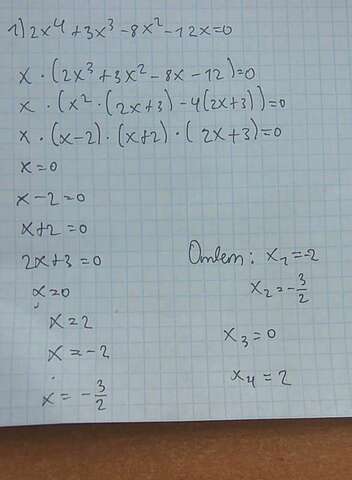 1) 2x⁴ + 3x³ - 8x² - 12x = 0
x · (2x³ + 3x² - 8x - 12) = 0
x · (x² · (2x + 3) - 4(2x + 3)) = 0
x · (x - 2) · (x + 2) · (2x + 3) = 0
x = 0
x - 2 = 0
x + 2 = 0
2x + 3 = 0
x = 0
x = 2
x = -2
x = -3/2
Ответ: x₁ = -2
x₂ = -3/2
x₃ = 0
x₄ = 2